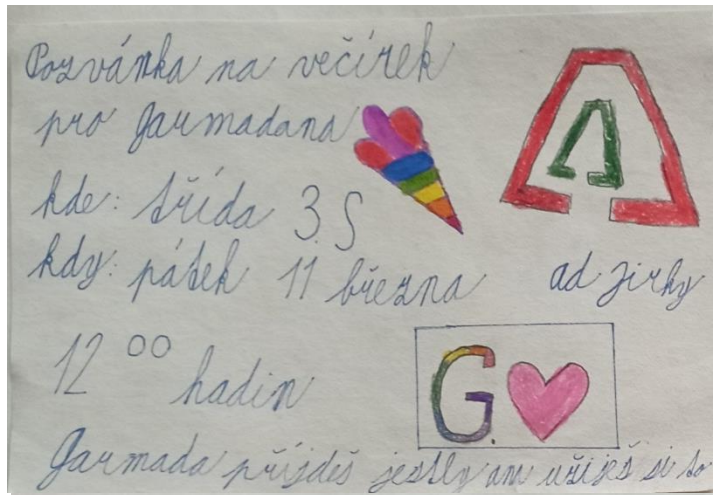 Pozvánka na večírek
pro Garmadana
kde: třída 3. S
kdy: pátek 11 března
od Jirky
12 00 hodin
G.
Garmada příjdeš jestly an užiješ si to